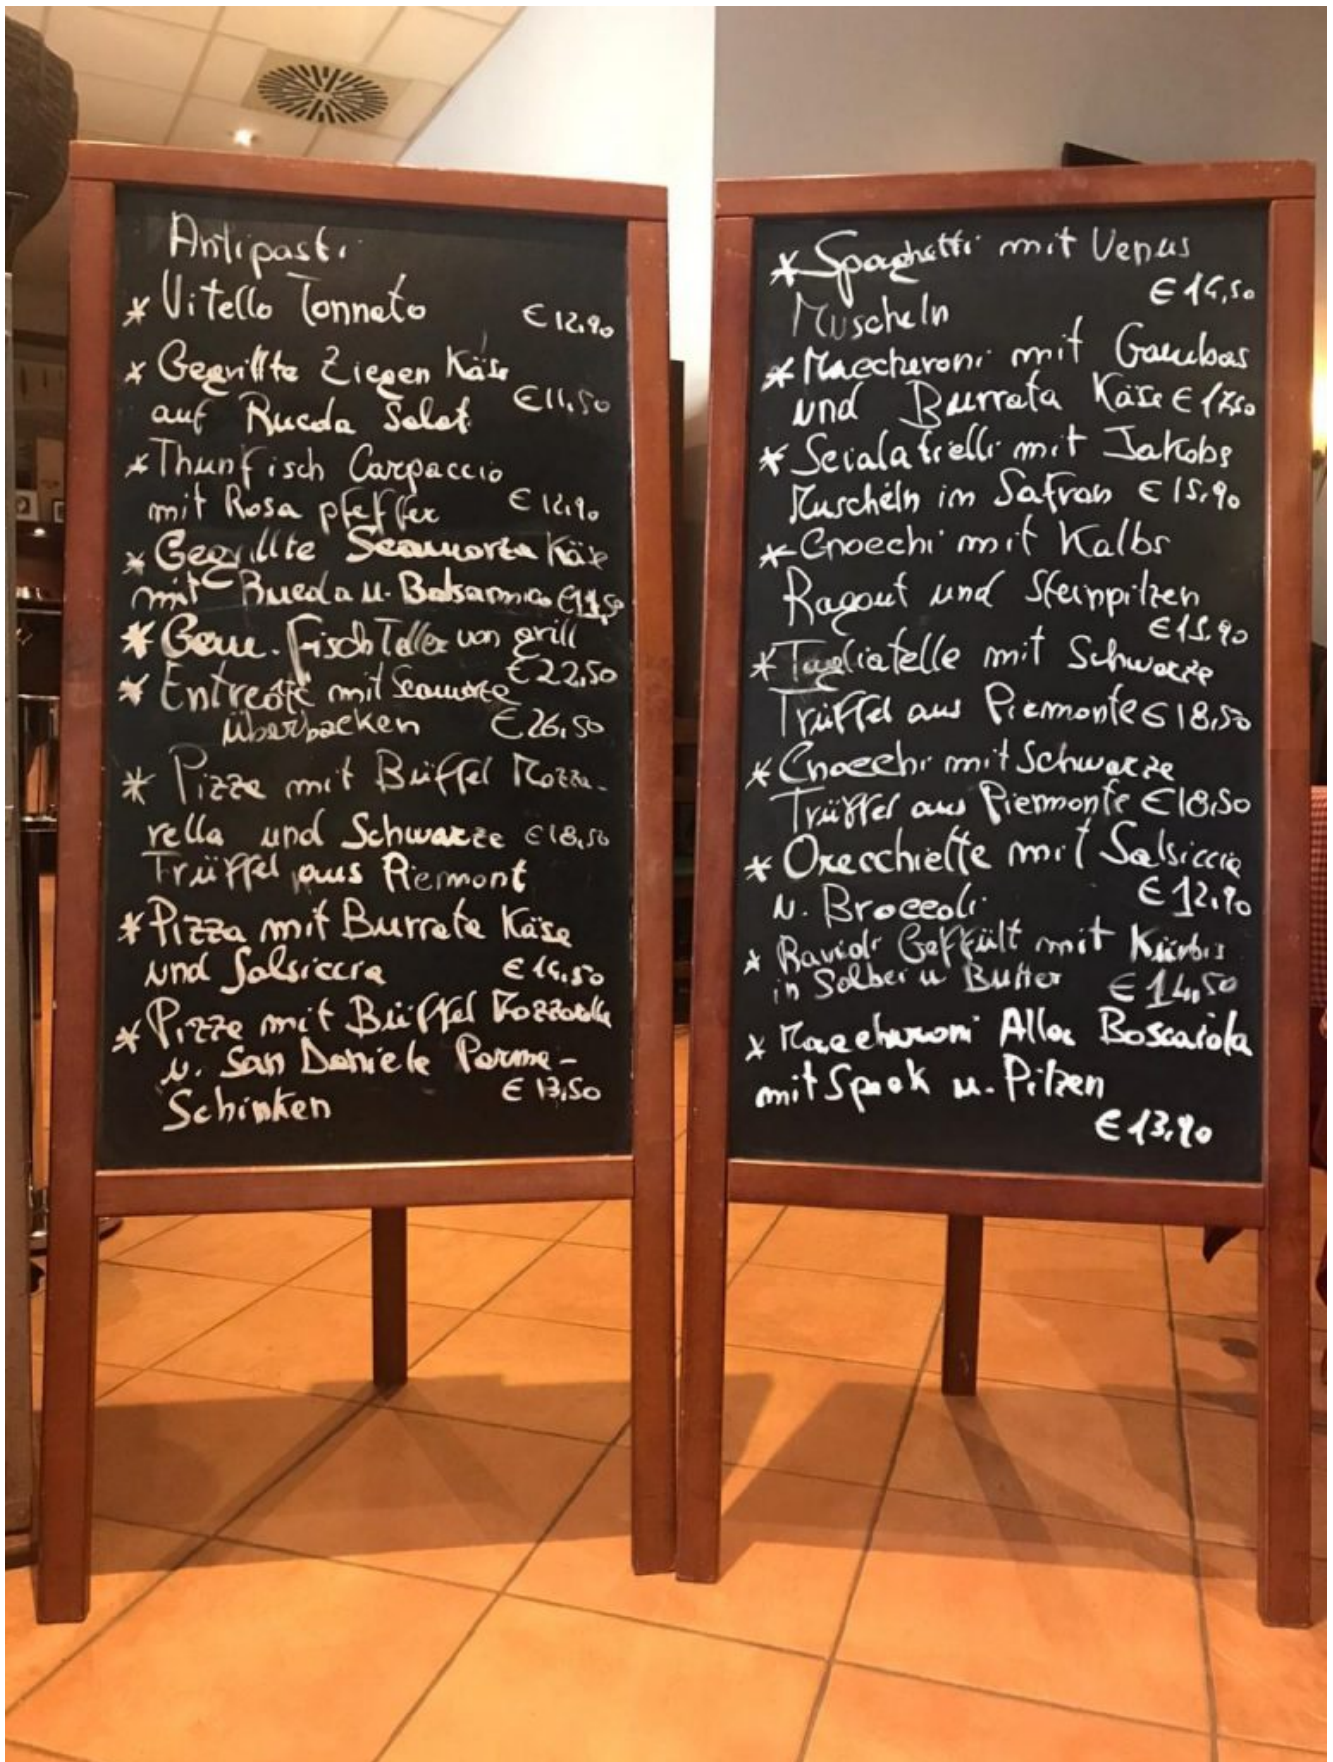 Antipasti
* Vitello Tonnato € 12,90
* Gegrillte Ziegen Käse
auf Rucola Salat € 11,50
* Thunfisch Carpaccio
mit Rosa pfeffer € 12,90
* Gegrillte Scamorza Käse
mit Rucola u. Balsamico € 11,50
* Gem. Fisch Teller von grill
€ 22,50
* Entrecôte mit Scamorza
überbacken € 26,50
* Pizza mit Büffel Mozza-
rella und Schwarze € 18,50
Trüffel aus Piemont
* Pizza mit Burrata Käse
und Salsiccia € 14,50
* Pizza mit Büffel Mozzarella
u. San Daniele Parma-
Schinken € 13,50
* Spaghetti mit Venus
Muscheln € 14,50
* Maccheroni mit Gambas
und Burrata Käse € 17,50
* Scialatielli mit Jakobs
Muscheln in Safran € 15,90
* Gnocchi mit Kalbs
Ragout und Steinpilzen
€ 15,90
* Tagliatelle mit Schwarze
Trüffel aus Piemonte € 18,50
* Gnocchi mit Schwarze
Trüffel aus Piemonte € 18,50
* Orecchiette mit Salsiccia
u. Broccoli € 12,90
* Ravioli Geffült mit Kürbis
in Salbei u Butter € 14,50
* Maccheroni Alla Boscaiola
mit Speck u. Pilzen
€ 13,90